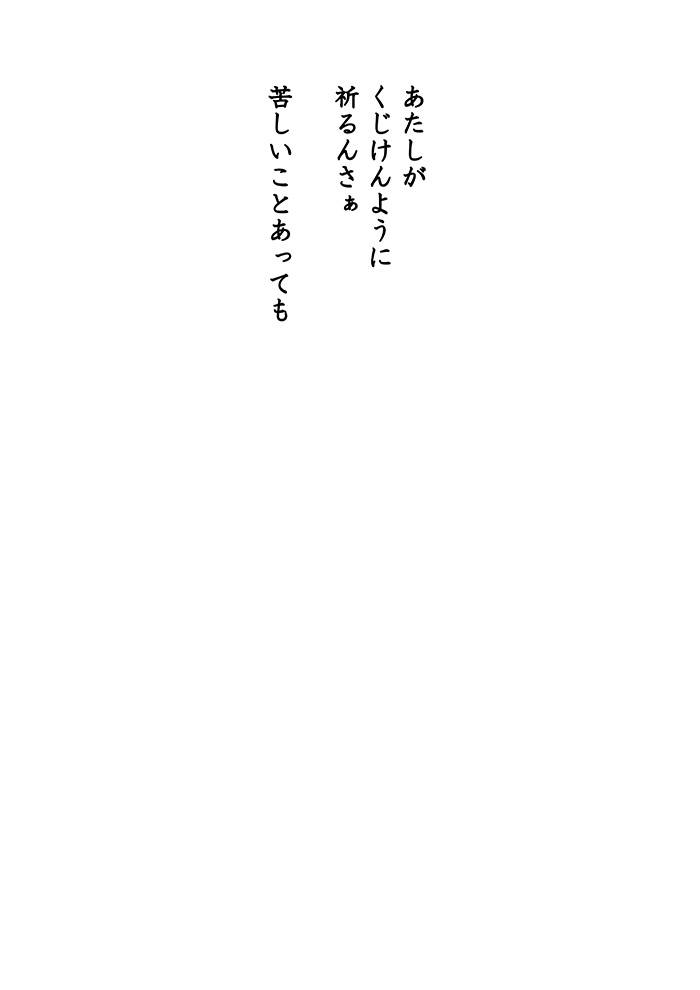 あたしが
くじけんように
祈るんさぁ
苦しいことあっても